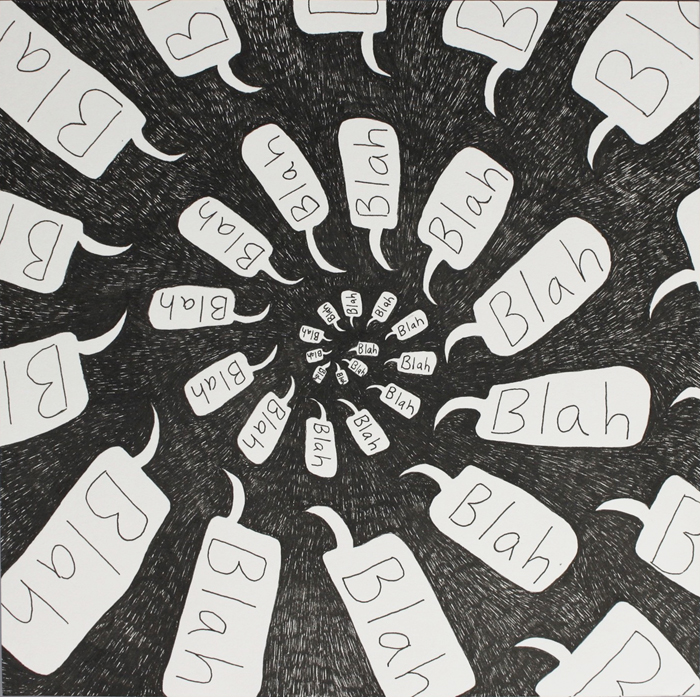 Bla
B
B
B
Bl
Blah
Blah
Blah
Blah
Blah
B
Blah
Blah
Blah
Blah
Blah
Blah
Blah
Blah
Blah
Blah
Blah
Blah
Blah
Bl
Blah
Blah
Blah
Blah
Blah
Blah
Blah
B
Blah
Blah
B